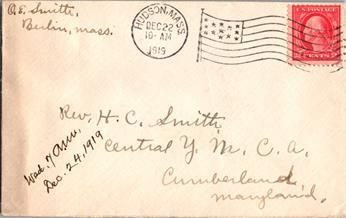 A.E. Smith,
Berlin, Mass.
HUDSON, MASS.
DEC 22
10-AM
1919
U.S. POSTAGE
2 CENTS 2
Rev. H. C. Smith,
Central Y. M. C. A.
Cumberland
Maryland.
Wed. 7 A.M.,
Dec. 24, 1919